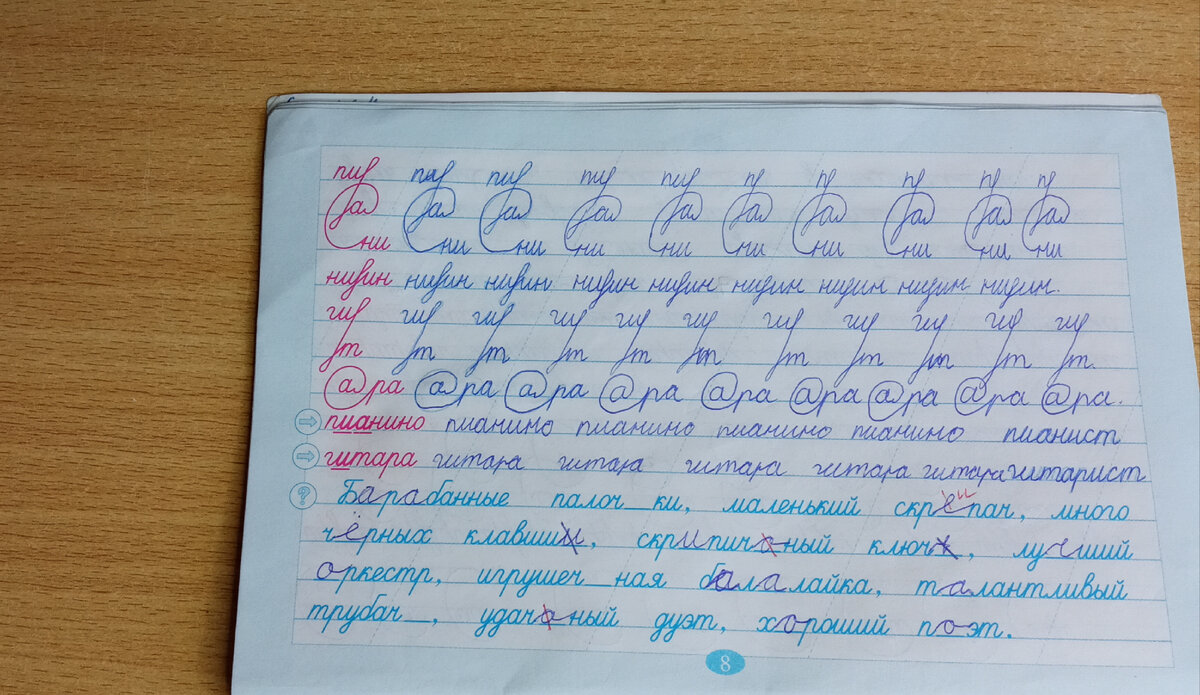 пиф пиф пиф пиф пиф пф пф пф пф пф
фал фал фал фал фал фал фал фал фал фал
ни ни ни ни ни ни ни ни ни ни
нивин нивин нивин нивин нивин нивин нивин нивин нивин.
гиф гиф гиф гиф гиф гиф гиф гиф гиф гиф гиф
т т т т т т т т т т т.
а ра а ра а ра а ра а ра а ра а ра а ра а ра.
пианино пианино пианино пианино пианино пианист
гитара гитара гитара гитара гитара гитара гитарист
? Барабанные палоч_ки, маленький скрепач, много
чёрных клавиши, скрипичный ключ, лучший
оркестр, игрушеч_ная балалайка, талантливый
трубач_, удачный дуэт, хороший поэт.
8